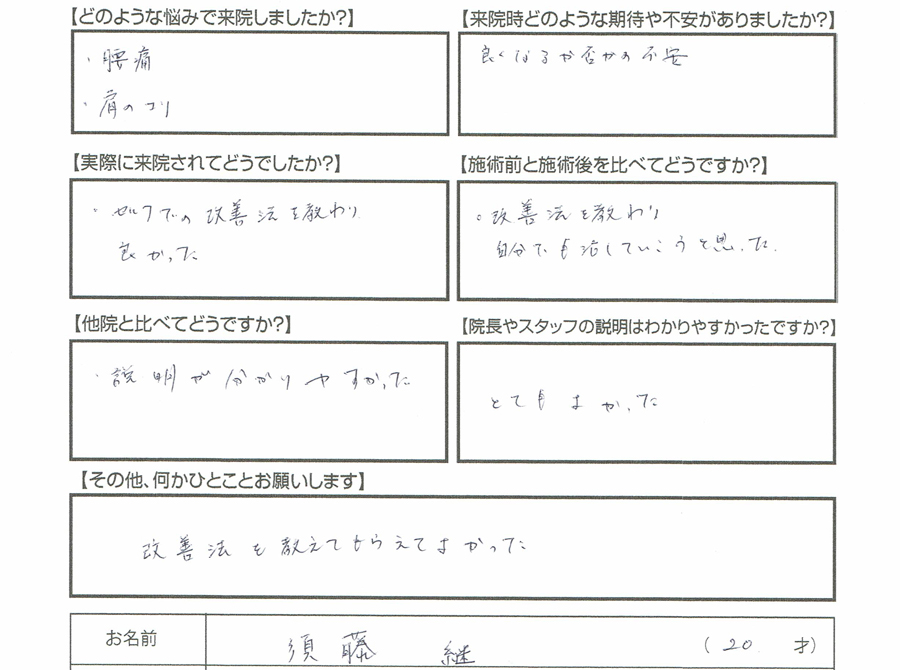 【どのような悩みで来院しましたか?】
・腰痛
・肩のコリ
【来院時どのような期待や不安がありましたか?】
良くなるか否かの不安
【実際に来院されてどうでしたか?】
・セルフでの改善法を教わり
良かった
【施術前と施術後を比べてどうですか?】
。改善法を教わり
自分でも治していこうと思った.
【他院と比べてどうですか?】
・説明が分かりやすかった
【院長やスタッフの説明はわかりやすかったですか?】
とてもよかった
【その他、何かひとことお願いします】
改善法を教えてもらえてよかった
お名前
須藤 継
(20 才)